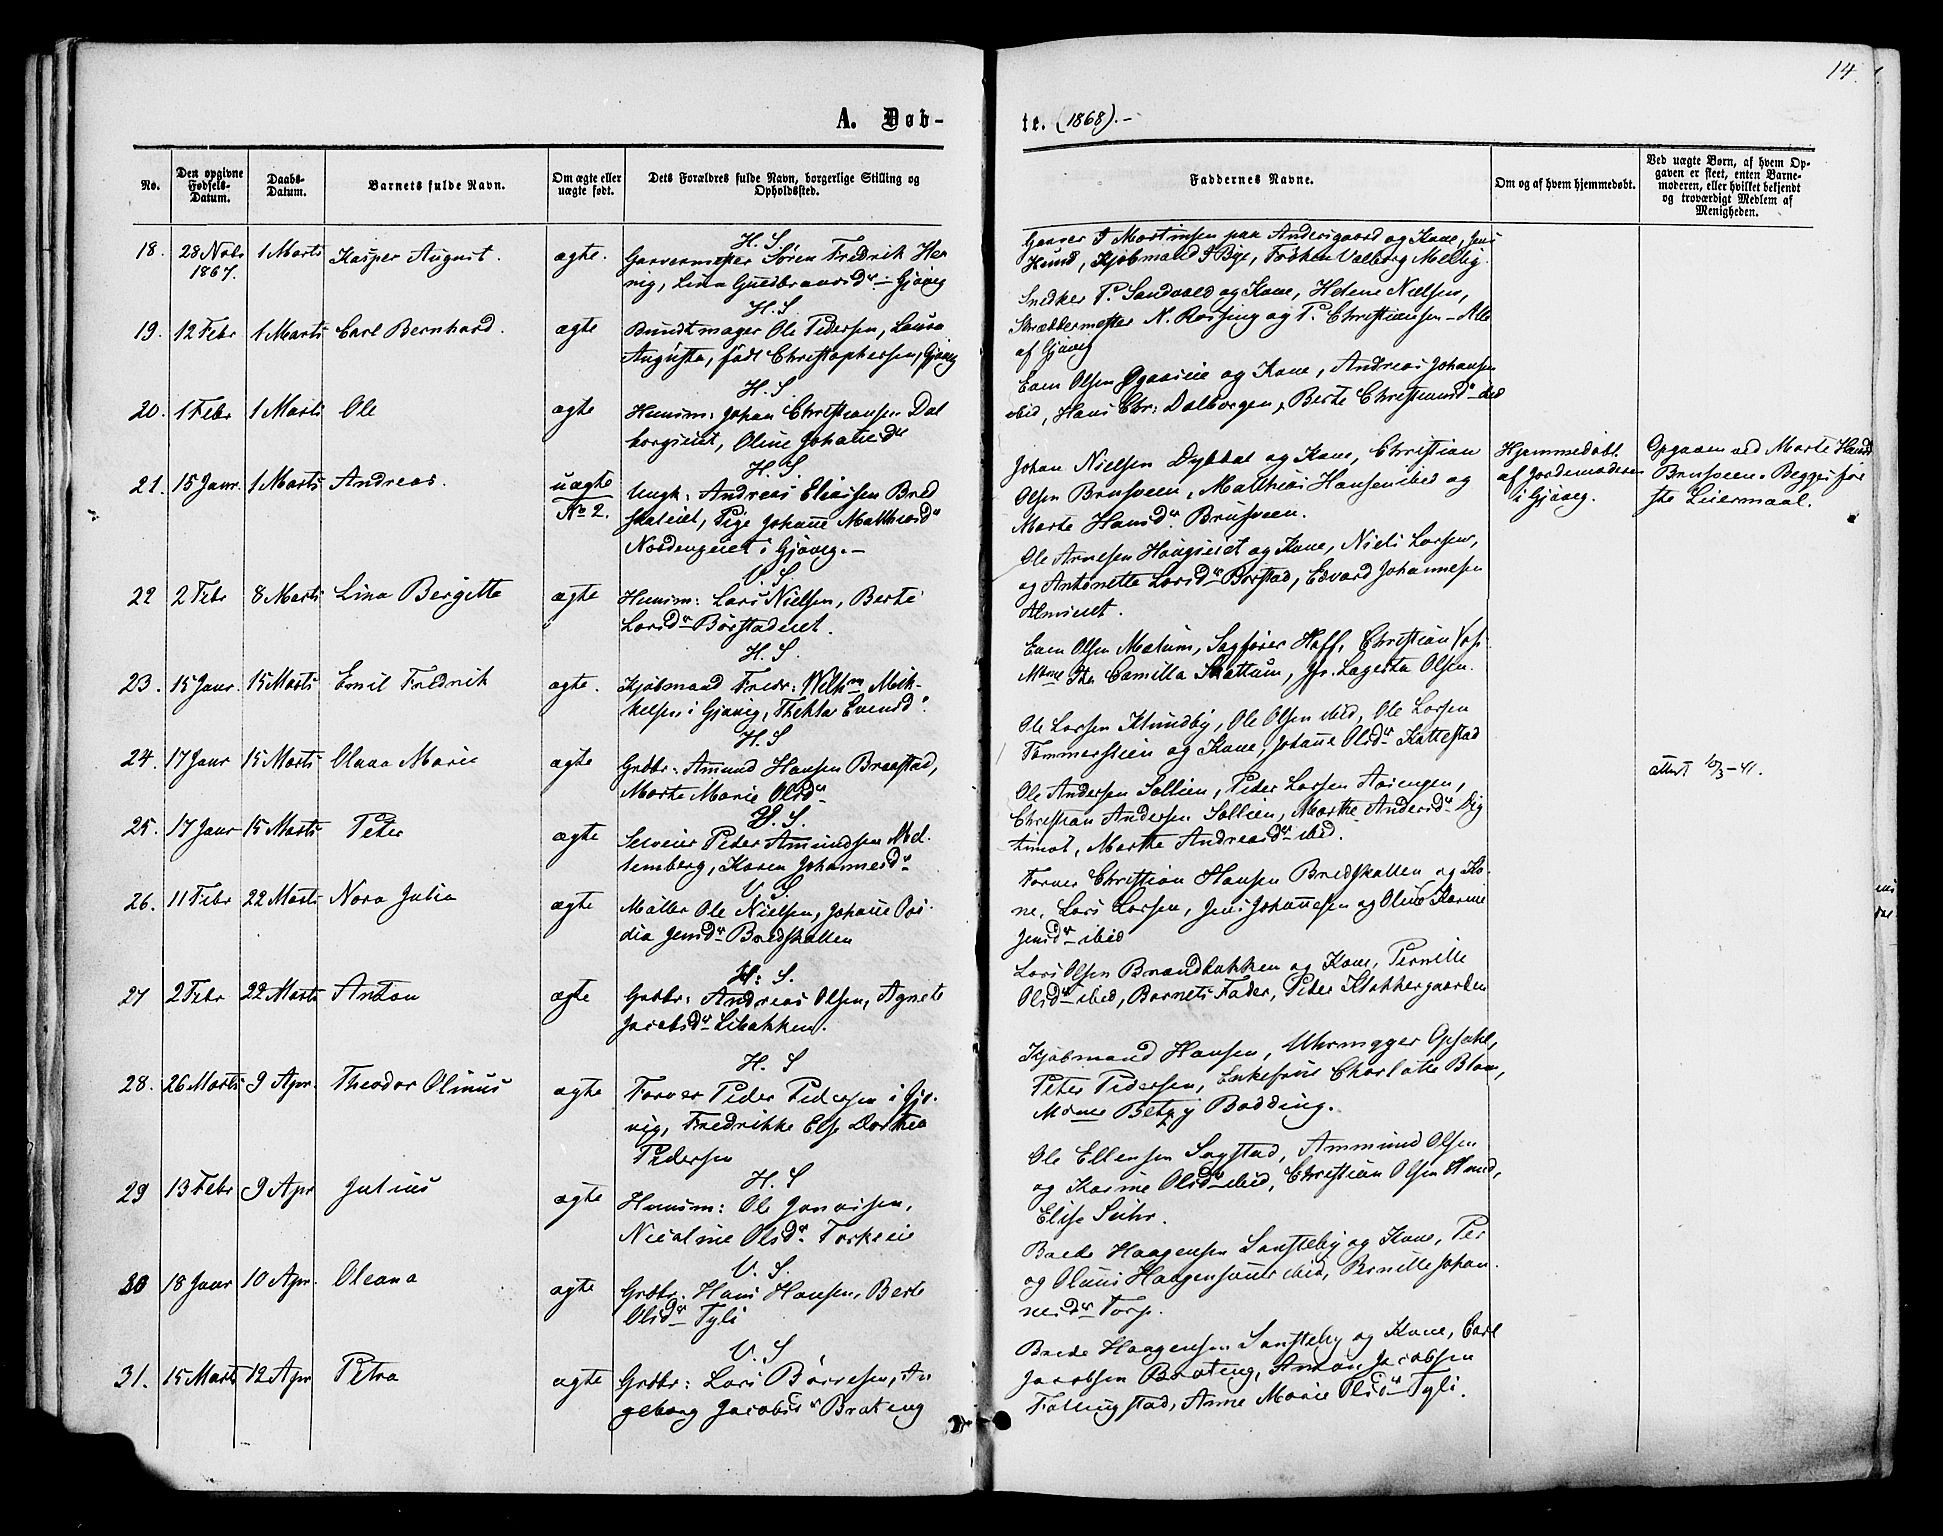 14.
A. Døb-
te. (1868).-
No.
Den opgivne Fødsels-Datum.
Daabs-Datum.
Barnets fulde Navn.
Om ægte eller uægte født.
Dets Forældres fulde Navn, borgerlige Stilling og Opholdssted.
Faddernes Navne.
Om og af hvem hjemmedøbt.
Ved uægte Børn, af hvem Op-
gaven er skeet, enten Barne-
moderen, eller hvilket bekjendt
og troværdigt Medlem af
Menigheden.
H. S.
18. 28 Nobr 1867. 1 Marts Kasper August. ægte.
Garvermester Søren Fredrik Hen-
nig, Lina Guldbransdr Gjøvig
Garver Martinsen paa Andersgaard og Kone, Jens
Lund, Kjøbmand Bye, Frøken Valborg Mellbye.
H. S.
19. 12 Febr 1 Marts Carl Bernhard. ægte
Bundtmager Ole Pedersen, Laura
Augusta, født Christophersen, Gjøvig
Snedker P. Sandvold og Kone, Helene Nielsen,
Skræddermester N. Rossing og P. Christiansen - Alle
af Gjøvig
H. S.
20. 1 Febr 1 Marts Ole ægte
Huusm: Johan Christiansen Dal
borgseiet, Oline Johansdr
Even Olsen Øgaaseie og Kone, Andreas Johansen
ibid, Hans Chr: Dalborgen, Berte Christiansdr ibid
H. S.
21. 15 Janr. 1 Marts Andreas. uægte No 2.
Ungk: Andreas Eliassen Bred
skaleiet, Pige Johanne Matthiasdr
Nordengeiet i Gjøvig. -
Johan Nielsen Dybdal og Kone, Christian
Olsen Brusveen, Matthias Hansen ibid og
Marte Hansdr Brusveen.
Hjemmedøbt
af Jordemoderen
i Gjøvig.
Opgaven ved Marte Hansdr
Brusveen. Begges før
ste Leiermaal.
V. S.
22 2 Febr 8 Marts Lina Bergitte ægte
Huusm: Lars Nielsen, Berte
Larsdr Børstadeiet.
Ole Arnesen Haugseiet og Kone, Niels Larsen,
og Antonette Larsdr Børstad, Edvard Johannesen
Almseiet.
H. S.
23. 15 Janr. 15 Marts Emil Fredrik ægte.
Kjøbmand Fredr: Wilhm Mik-
kelsen i Gjøvig, Thekla Evensdr
Even Olsen Mælum, Sagfører Hoff, Christian
Mdme Camilla Skattum, Jfr. Lagerta Olsen.
H. S
24. 17 Janr 15 Marts Olava Marie ægte
Grdbr: Amund Hansen Braastad,
Marte Marie Olsdr
Ole Larsen Klundby, Ole Olsen ibid, Ole Larsen
Tømmerstuen og Kone, Johanne Olsdr Kattestad
attest 10/3-41.
H. S.
25. 17 Janr 15 Marts Peter ægte
Selveier Peder Amundsen Mel-
lemberg, Karen Johannesdr
Ole Andersen Sollien, Peder Larsen Aasengen,
Christian Andersen Sollien, Marthe Andersdr Dig
Marthe Andreasdr ibid.
V. S
26. 11 Febr 22 Marts Nora Julia ægte
Møller Ole Nielsen, Johanne Pau-
dia Jensdr Bredskallen
Farver Christian Hansen Bredskallen og Ko-
ne, Lars Larsen, Jens Johannesen og Oline Karine
Jensdr ibid
H. S.
27 2 Febr 22 Marts Anton ægte
Grdbr: Andreas Olsen, Agnete
Jacobsdr Libakken.
Lars Olsen Brændbakken og Kone, Pernille
Olsdr ibid, Barnets Fader, Peder Klokkergaarden
H. S
28. 26 Marts 9 Apr. Theodor Olinus ægte
Farver Peder Pedersen i Gjø-
vig, Fredrikke Else Dorthea
Pedersen
Kjøbmand Hansen, Uhrmager Opsahl,
Peter Pedersen, Enkefrue Charlotte Blom,
Mdme Betzy Bødding.
H. S
29 13 Febr 9 Apr Julius ægte
Huusm: Ole Jonassen,
Nicoline Olsdr Torkseie
Ole Ellensen Sogstad, Ammund Olsen
og Karine Olsdr ibid, Christian Olsen Hund,
Elise Suhr.
V. S.
30 18 Janr 10 Apr. Oleana ægte
Grdbr. Hans Hansen, Berte
Olsdr Tyli
Brede Haagensen Sønsteby og Kone, Per
og Olaus Haagensønner ibid, Pernille Johan-
nesdr Torp.
V. S
31. 15 Marts 12 Apr Petra ægte
Grdbr: Lars Børresen, In
geborg Jacobsdr Brateng
Brede Haagensen Sønsteby og Kone, Carl
Jacobsen Brateng, Anton Jacobsen
Fallingstad, Anne Marie Olsdr Tyli.